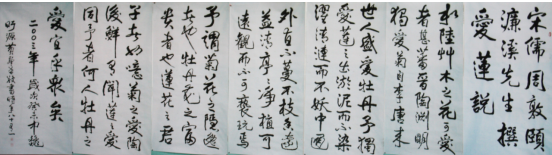 宋儒周敦頤
濂溪先生撰
愛蓮說
水陸艸木之花可愛
者甚蕃晉陶淵明
獨愛菊自李唐来
世人盛愛牡丹予獨
愛蓮之出淤泥而不染
濯清漣而不妖中通
外直不蔓不枝香遠
益清亭亭淨植可
遠觀而不可褻玩焉
予謂菊花之隱逸
者也牡丹花之富
貴者也蓮花之君
子者也噫菊之愛陶
後鮮有聞蓮之愛
同予者何人牡丹之
愛宜乎衆矣
二〇〇三年 歲次癸未